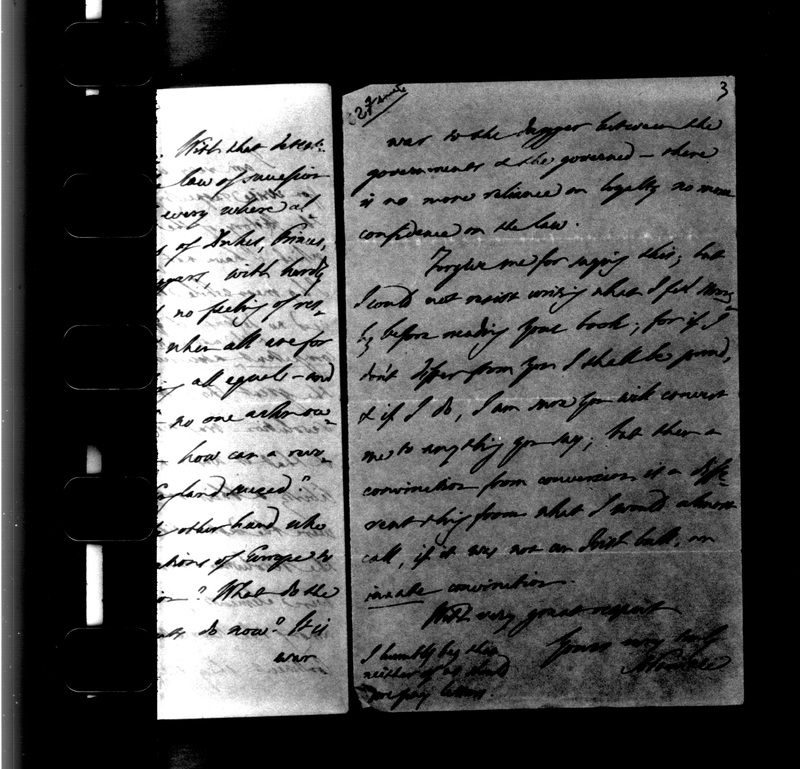 With that detest:
law of succession
every where al
of Dukes, Princes,
with hardly
no feeling of res,
when all are for
all equals - and
no one acknow
how can a revo,
England succeed?
other hand who
nations of Europe to
? What do the
do now? It is
war
3
war to the dagger between the
governments & the governed - there
is no more reliance on loyalty no more
confidence in the law.
Forgive me for saying this; but
I could not resist writing what I feel strong
ly before reading your book; for if I
don't differ from you I shall be proud,
& if I do, I am sure you will convert
me to anything you say; but then a
conviction from conversion is a diffe
rent thing from what I would almost
call, if it was not an Irish bull, an
innate conviction.
With very great respect
Yours very truly
I humbly beg that
neither of us should
pay letters.